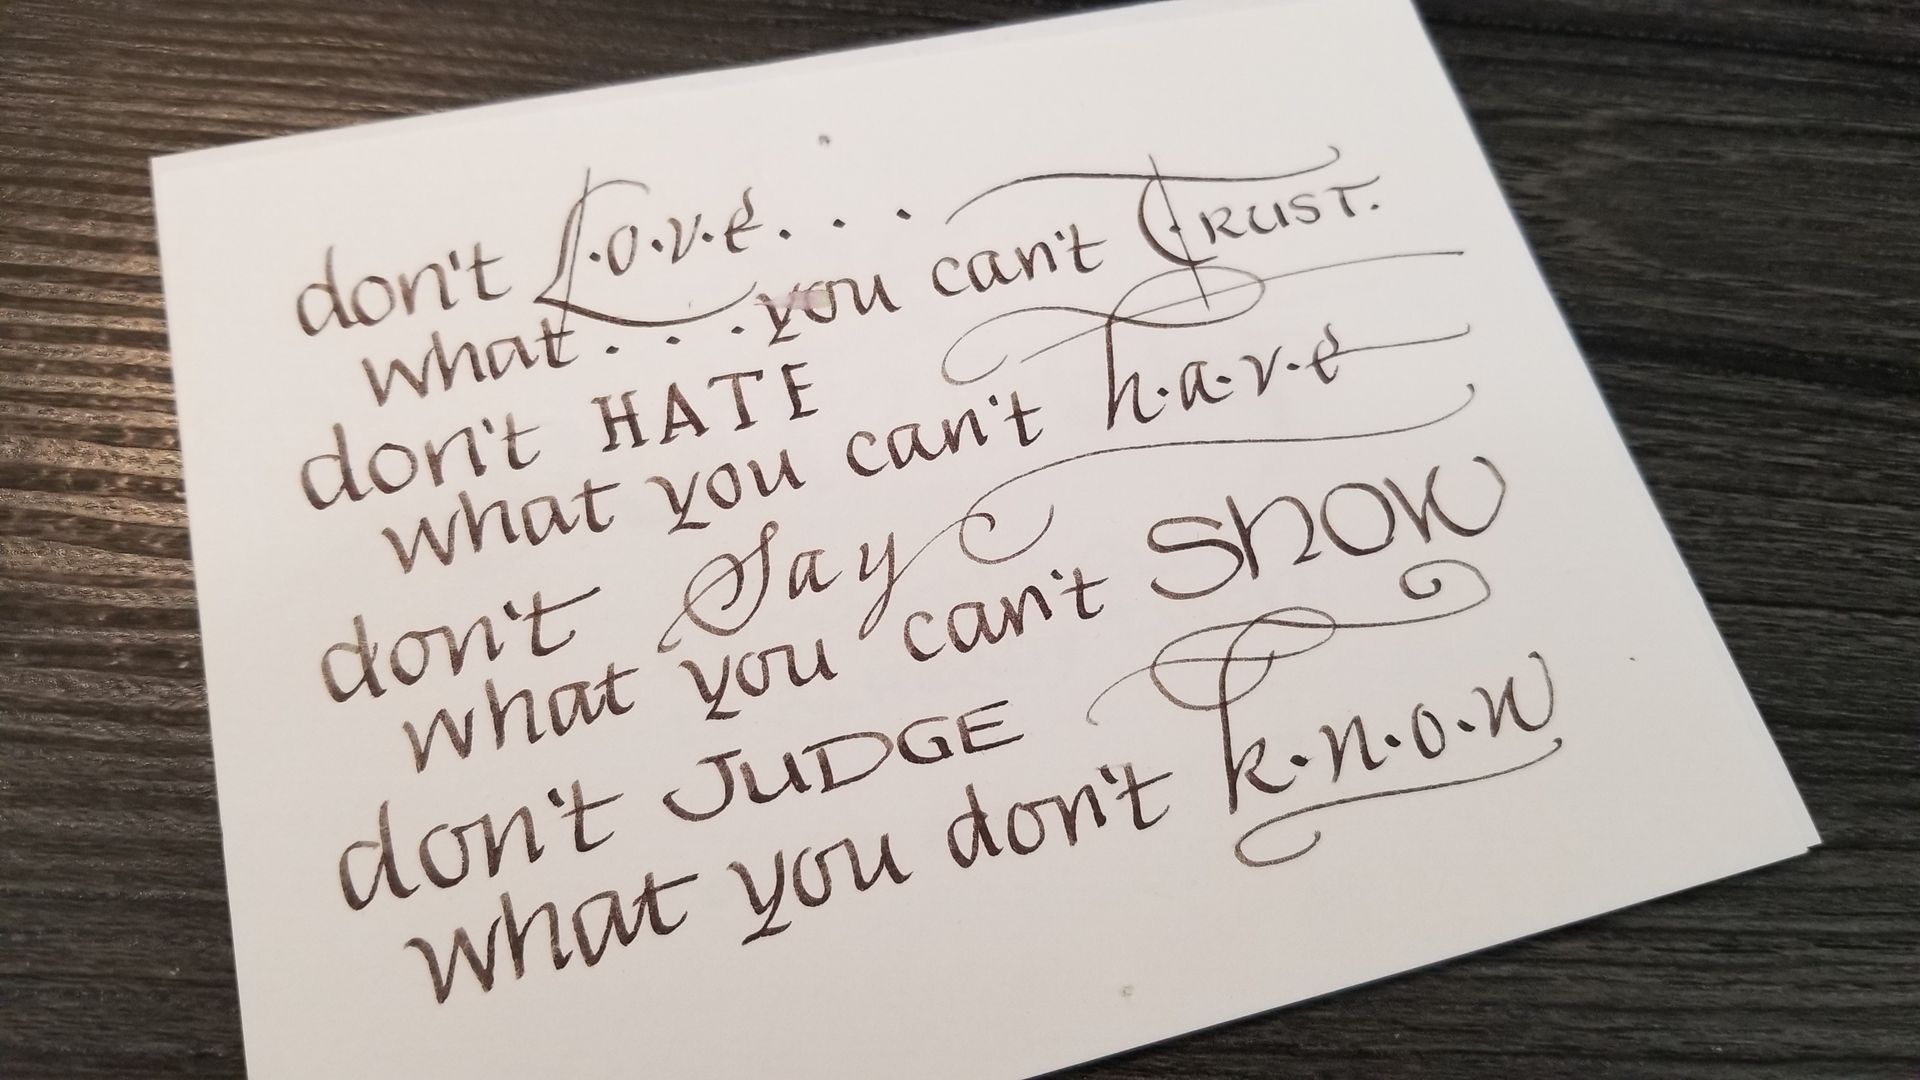 don't L·o·v·e . . .
what . . . you can't TRUST.
don't HATE
what you can't h·a·v·e
don't Say
what you can't SHOW
don't JUDGE
what you don't k·n·o·w